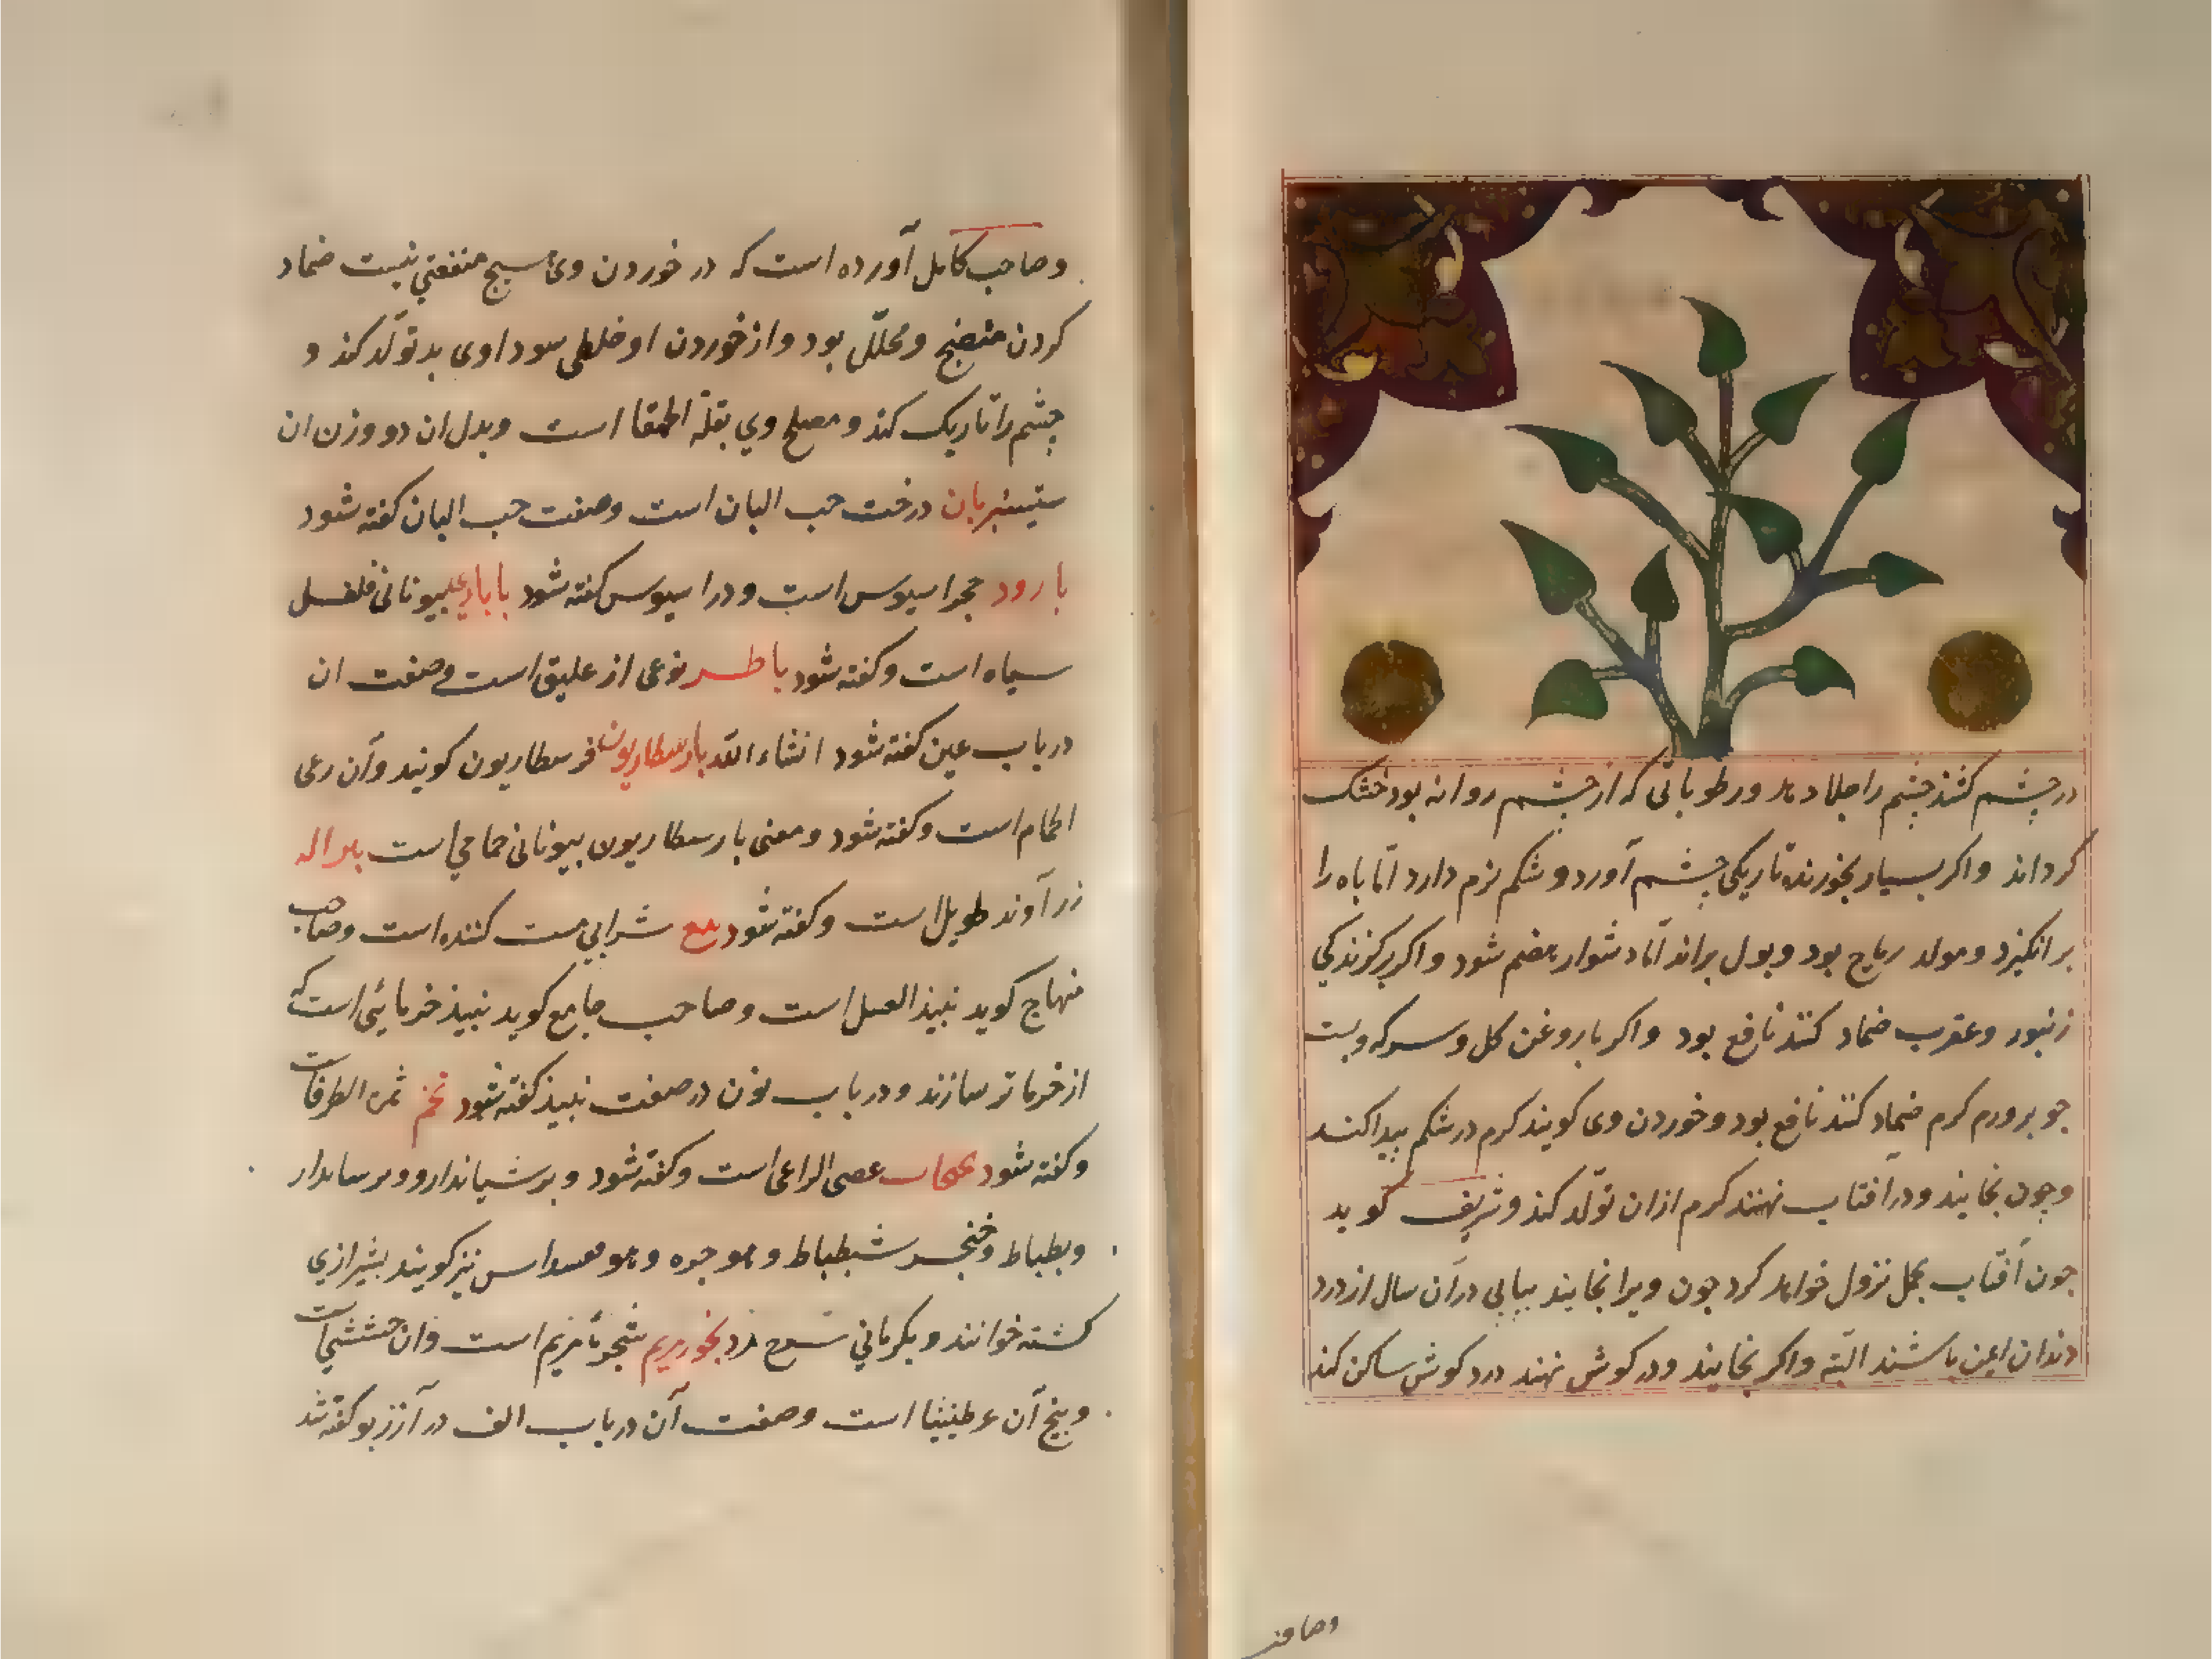 در چشم کشند چشم را جلا دهد ورطوباتی که از چشم روانه بود خشک
کرداند واکر بسیار بخورند تاریکی چشم آورد و شکم نرم دارد اما باه را
برانکیزد ومولد ریاح بود وبول براند اما دشوار هضم شود واکر برکزندکی
زنبور وعقرب ضماد کنند نافع بود واکر باروغن کل وسرکه وبست
جو برورم کرم ضماد کنند نافع بود وخوردن وی کویند کرم درشکم پیدا کند
وچون بخایند ودرآفتاب نهند کرم ازان تولّد کند وشریف کوید
جون آفتاب بحمل نزول خواهد کرد جون ویرا بخایند بیابی درآن سال ازدرد
دندان ایمن باشند البته واکر بخایند ودر کوش نهند درد کوش ساکن کند
وصاحب
وصاحب کامل آورده است که در خوردن وی هیج منفعتی نیست ضماد
کردن منضج ومحلّل بود واز خوردن او خلطی سوداوی بد تولّد کند و
چشم را تاریک کند ومصلح وی بقلة الحمقا است وبدل ان دو وزن ان
درخت حب البان است وصفت حب البان کفته شود
بارود حجر اسیوس است ودر اسیوس کفته شود بیونانی فلفل
سیاه است وکفته شود باطس نوعی از علیق است وصفت ان
درباب عین کفته شود انشاء الله بارسطاریون فرسطاریون کویند وآن رعی
الحمام است وکفته شود ومعنی بارسطاریون بیونانی حمامی است
زرآوند طویل است وکفته شود بتع شرابی مست کننده است وصاحب
منهاج کوید نبیذ العسل است وصاحب جامع کوید نبیذ خرمائی است که
از خرما تر سازند ودرباب نون درصفت نبیذ کفته شود ثمرة الطرفاست
وکفته شود عصی الراعی است وکفته شود وبرشیاندارو وبرسیاندار
وبطباط وخنجر شبطباط نیز کویند بشیرازی
کشته خوانند وبکرمانی سرخ مرد بخورمریم شجرة مریم است وان حشیشی است
وبیخ آن عرطنیثا است وصفت آن درباب الف در آزربو کفته شد